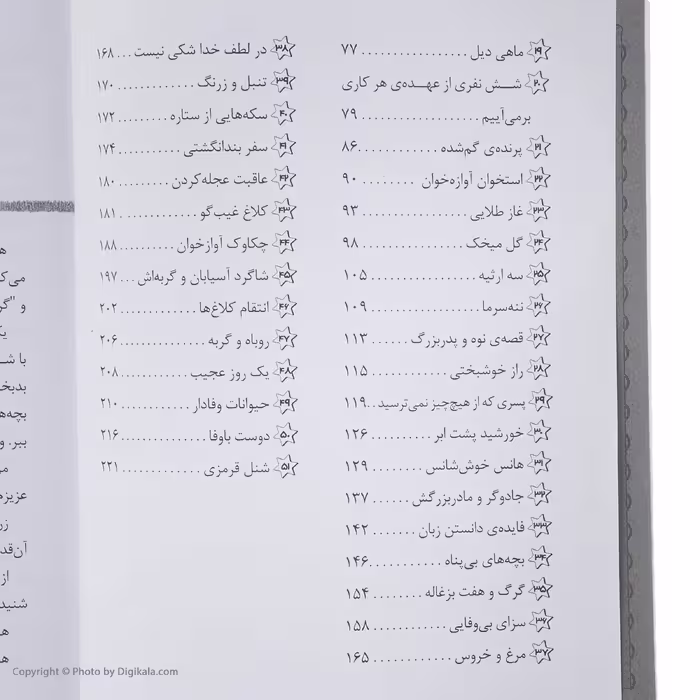 ۱۹ ماهی دیل ................ ۷۷
۲۰ شــش نفری از عهــده‌ی هر کاری
برمی‌آییم .................. ۷۹
۲۱ پرنده‌ی گم‌شده ............ ۸۶
۲۲ استخوان آوازه‌خوان ........ ۹۰
۲۳ غاز طلایی ................. ۹۳
۲۴ گل میخک ................. ۹۸
۲۵ سه ارثیه ................ ۱۰۵
۲۶ ننه‌سرما ................ ۱۰۹
۲۷ قصه‌ی نوه و پدربزرگ ...... ۱۱۳
۲۸ راز خوشبختی ............ ۱۱۵
۲۹ پسری که از هیچ‌چیز نمی‌ترسید .. ۱۱۹
۳۰ خورشید پشت ابر .......... ۱۲۶
۳۱ هانس خوش‌شانس ........ ۱۲۹
۳۲ جادوگر و مادربزرگش ...... ۱۳۷
۳۳ فایده‌ی دانستن زبان ....... ۱۴۲
۳۴ بچه‌های بی‌پناه ............ ۱۴۶
۳۵ گرگ و هفت بزغاله ........ ۱۵۴
۳۶ سزای بی‌وفایی ............ ۱۵۸
۳۷ مرغ و خروس ............. ۱۶۵
۳۸ در لطف خدا شکی نیست ... ۱۶۸
۳۹ تنبل و زرنگ ............. ۱۷۰
۴۰ سکه‌هایی از ستاره ........ ۱۷۲
۴۱ سفر بندانگشتی .......... ۱۷۴
۴۲ عاقبت عجله‌کردن ........ ۱۸۰
۴۳ کلاغ غیب‌گو ............. ۱۸۱
۴۴ چکاوک آوازخوان .......... ۱۸۸
۴۵ شاگرد آسیابان و گربه‌اش ... ۱۹۷
۴۶ انتقام کلاغ‌ها ............. ۲۰۲
۴۷ روباه و گربه .............. ۲۰۶
۴۸ یک روز عجیب ............ ۲۰۸
۴۹ حیوانات وفادار ............ ۲۱۰
۵۰ دوست باوفا .............. ۲۱۶
۵۱ شنل قرمزی ............. ۲۲۱
و "گر
با شـ
بچه‌ه
ببر. و
عزیزم
آن‌قد
از
شنید
Copyright © Photo by Digikala.com